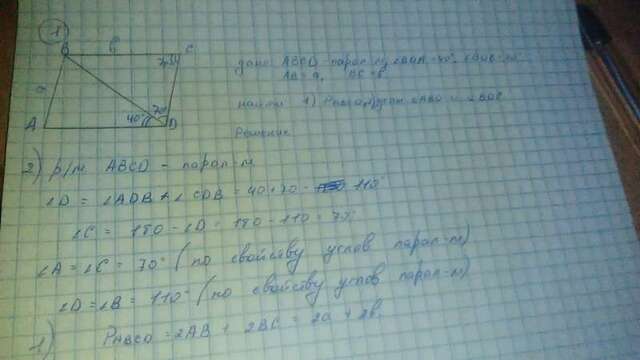 1
B b C
a
A 40° 70° D
дано: ABCD - парал-м,
AB = a,
найти 1)
Решение
2) р/м ABCD - парал-м
∠D = ∠ADB + ∠CDB = 40+70 = 110°
∠C = 180 - ∠D = 180 - 110 = 70°
∠A = ∠C = 70° (по свойству углов парал-м)
∠D = ∠B = 110° (по свойству углов парал-м)
1) PABCD = 2AB + 2BC = 2a + 2b.